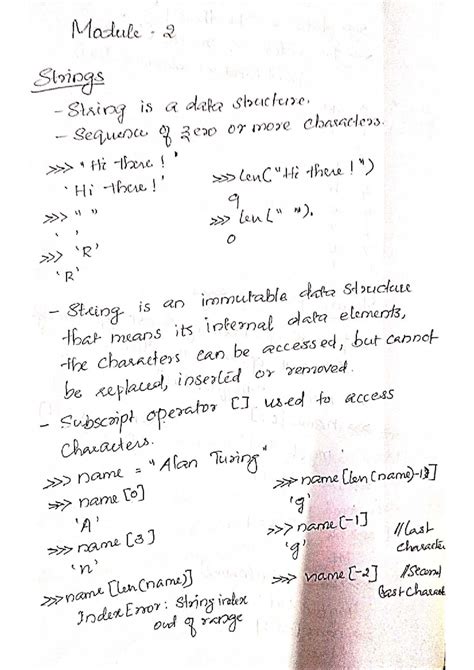 Module - 2
Strings
- String is a data structure.
- Sequence of zero or more characters.
>>> "Hi there!"
'Hi there!'
>>> " "
' '
>>> 'R'
'R'
>>> len("Hi there!")
9
>>> len(" ").
0
- String is an immutable data structure
that means its internal data elements,
the characters can be accessed, but cannot
be replaced, inserted or removed.
- Subscript operator [] used to access
characters.
>>> name = "Alan Turing"
>>> name[0]
'A'
>>> name[3]
'n'
>>> name[len(name)]
IndexError: String index
out of range
>>> name[len(name)-1]
'g'
>>> name[-1] //Last
'g' character
>>> name[-2] //Second
last charact